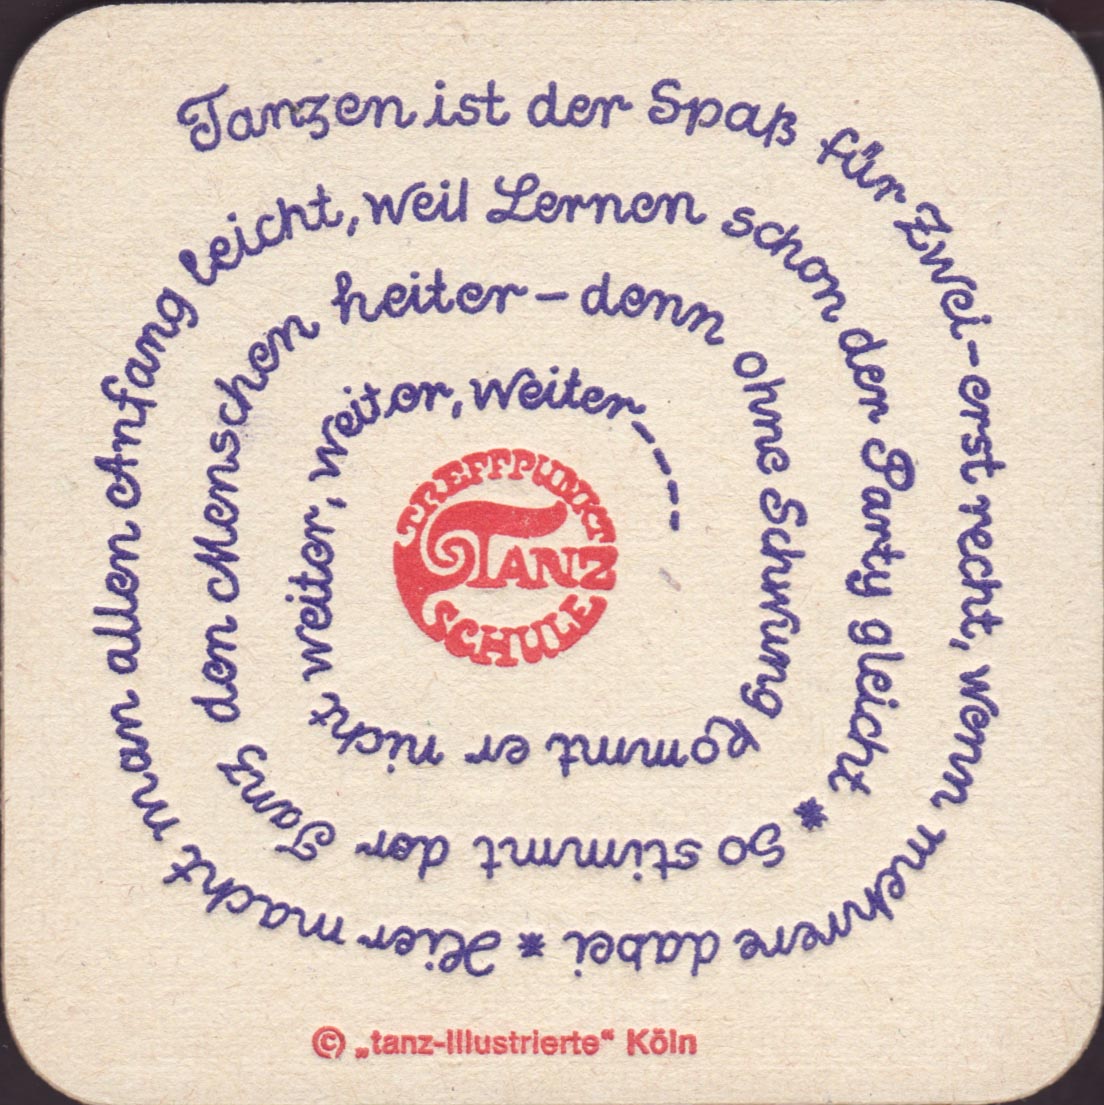 Tanzen ist der Spaß für Zwei - erst recht, wenn mehrere dabei *
Hier macht man allen Anfang leicht, weil Lernen schon der Party gleicht *
So stimmt der Tanz den Menschen heiter - denn ohne Schwung kommt er nicht weiter, weiter, weiter ----
TREFFPUNKT
TANZ
SCHULE
© „tanz-illustrierte“ Köln